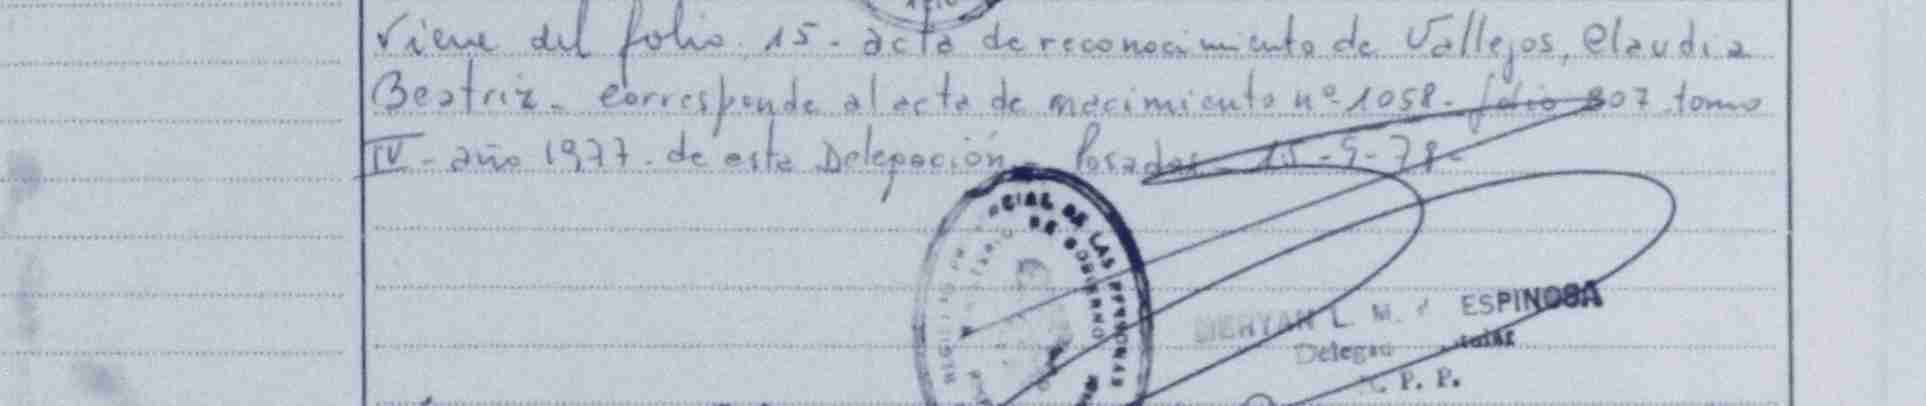 Viene del folio 15 - acta de reconocimiento de Vallejos, Claudia
Beatriz - corresponde al acta de nacimiento nº 1058 - folio 807 tomo
IV - año 1977 - de esta Delegación - Posadas 15-9-78-
CIAL DE LAS PERSONAS
DE GOBIERNO
MERYAN L. M. ESPINOSA
Titular
P. P.